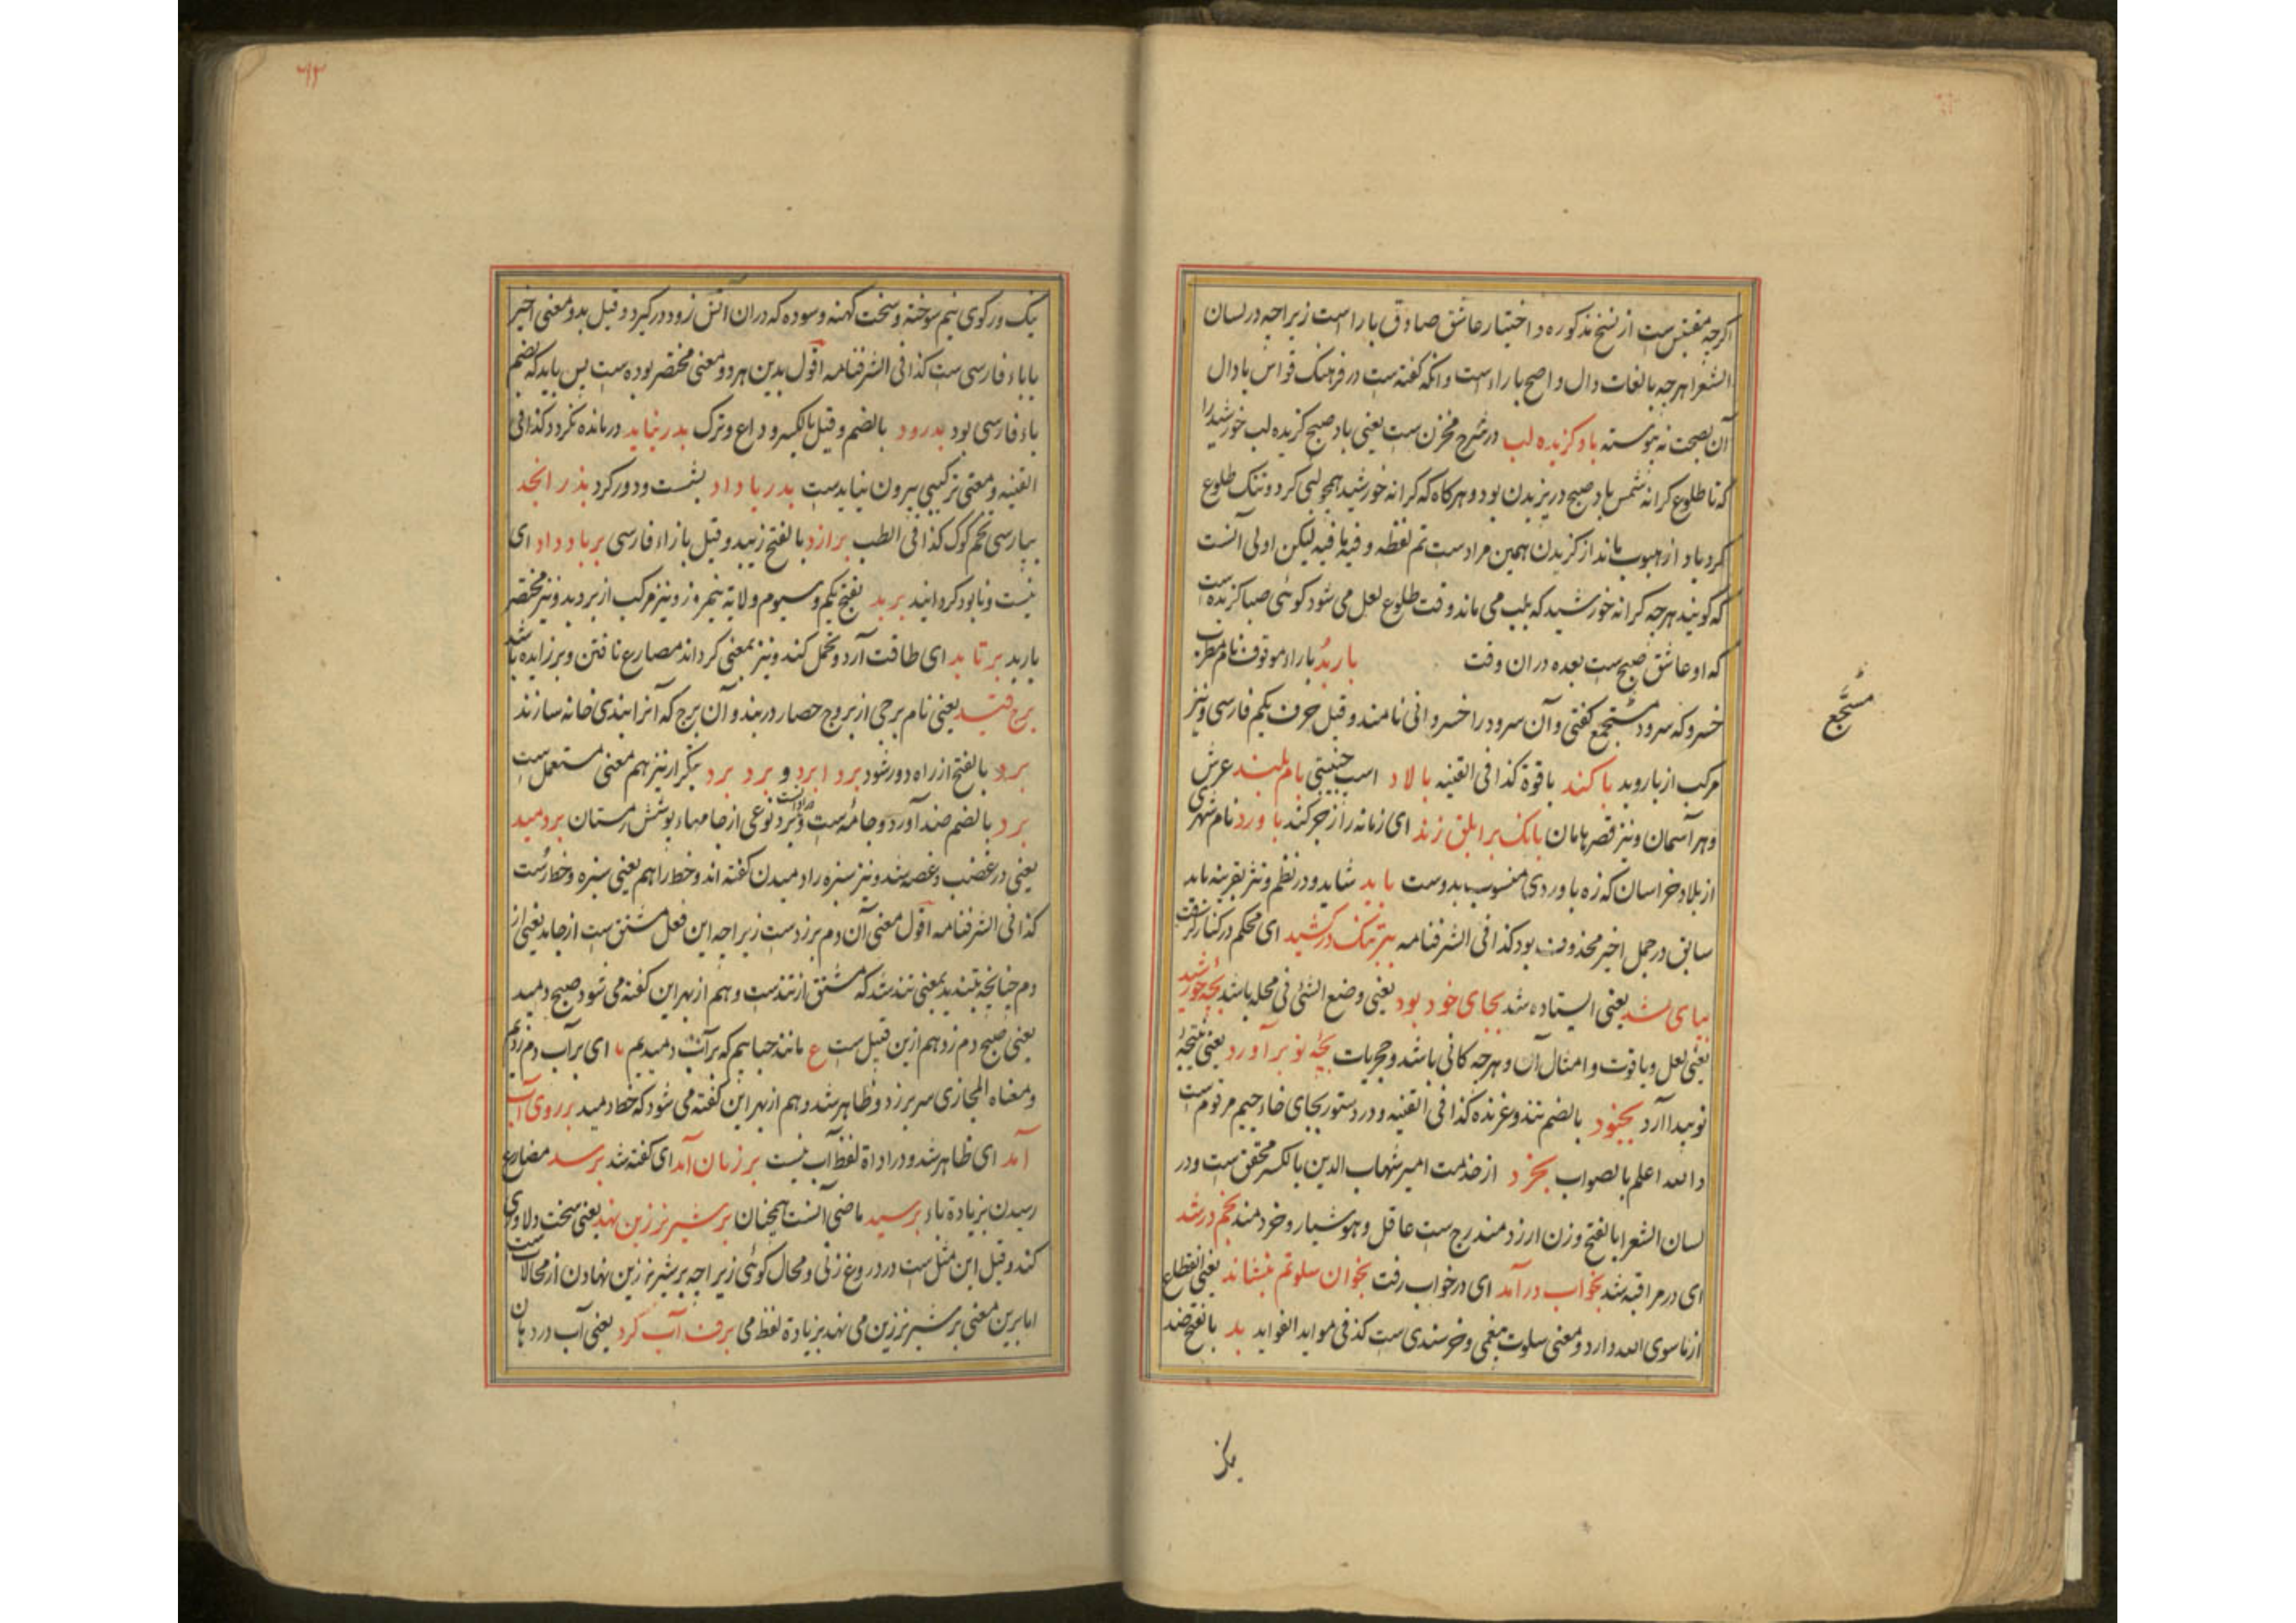 اکرچه مقتبس ست از نسخ مذکوره و اختیار عاشق صادق بارا است زیراچه در لسان
الشعرا هرچه بالغات دال و اصح باراء است و انکه کفته ست در فرهنک قواس با دال
آن بصحت نه پیوسته باد کزیده لب در شرح مخزن ست یعنی باد صبح کزیده لب خورشید را
که تا طلوع کرانه شمس باد صبح در پزیدن بود و هرکاه که کرانه خورشید همچو لبی کرد و تنک طلوع
کرد باد از هبوب ماند از کزیدن همین مراد ست تم لفظه و فیه ما فیه لیکن اولی آنست
که کویند هرچه کرانه خورشید که بلب می ماند وقت طلوع لعل می شود کوئی صبا کزیده است
که او عاشق صبح ست بعده در ان وقت باربُد باراء موقوف نام مطرب
خسرو که سرود مسجع کفتی و آن سرود را خسروانی نامند و قیل حرف یکم فارسی و نیز
مُسَجَّع
مرکب از بار و بد باکند یاقوة کذا فی القنیه بالاد اسب جنیبتی بام بلند عرش
و هر آسمان و نیز قصر هامان بانک بر ابلق زند ای زمانه را زجر کند باورد نام شهری
از بلاد خراسان که زه باوردی منسوب بدوست باید شاید و در نظم و نثر بقرینه باید
سابق در جمل اخیر محذوف بود کذا فی الشرفنامه ببرتنک درکشید ای محکم در کنار کرفت
بپای شد یعنی ایستاده شد بجای خود بود یعنی وضع الشئ فی محله باشد بچه خورشید
یعنی لعل و یاقوت و امثال آن و هرچه کانی باشد و حجریات بچه نو برآورد یعنی نتیجهٔ
نو پیدا آرد بخنود بالضم تندر و غرنده کذا فی القنیه و در دستور بجای خاء جیم مرقوم ست
والله اعلم بالصواب بخرد از خدمت امیر شهاب الدین بالکسر محقق ست و در
لسان الشعرا بالفتح وزن ارزد مندرج ست عاقل و هوشیار و خردمند بخم درشد
ای در مراقبه شد بخواب درآمد ای در خواب رفت بخوان سلوتم بنشاند یعنی انقطاع
از ماسوی الله دارد و معنی سلوت بیغمی و خرسندی ست کذا فی مواید الفواید بد بالفتح ضد
یک ورکوی نیم سوخته و سخت کهنه و سوده که در ان آتش زود درکیرد و قیل بدو معنی اخیر
با باء فارسی ست کذا فی الشرفنامه اقول بدین هر دو معنی مختصر بوده ست پس باید که بضم
باء فارسی بود بدرود بالضم و قیل بالکسر و داع و ترک بدر نیاید درمانده نکردد کذا فی
القنیه و معنی ترکیبی بیرون نیاید ست بدریا داد بشست و دور کرد بذر انجد
بپارسی تخم کوک کذا فی الطب برازد بالفتح زیبد و قیل بازاء فارسی برباد داد ای
نیست و نابود کردانید بربد بفتح یکم و سیوم ولایة نیمروز و نیز مرکب از بر و بد و نیز مختصر
باربد برتابد ای طاقت آرد و تحمل کند و نیز بمعنی کرداند مضارع تافتن و بر زایده باشد
برج قید یعنی نام برجی از بروج حصار دربند و آن برج که آنرا بندی خانه سازند
برد بالفتح از راه دور شود برد ابرد و برد برد بتکرار نیز بهم معنی مستعمل ست
برد بالضم ضد آورد و جامه ایست و برد نوعی از جامهاء پوشش زمستان بردمید
یعنی در غضب و غصه شد و نیز سبزه را دمیدن کفته اند و خط را هم یعنی سبزه و خط رست
کذا فی الشرفنامه اقول معنی آن دم برزد ست زیراچه این فعل مشتق ست از جامد یعنی از
دم چنانچه بتندید بمعنی تند شد که مشتق از تند ست و هم از بهر این کفته می شود صبح دمید
یعنی صبح دم زد هم ازین قبیل ست ع مانند حبابیم که بر آب دمیدیم ما ای بر آب دم زدیم
و معناه المجازی سر برزد و ظاهر شد و هم از بهر این کفته می شود که خط دمید برروی آب
آمد ای ظاهر شد و در اداة لفظ آب نیست بر زبان آمد ای کفته شد برسد مضارع
رسیدن بزیادة باء برسید ماضی آنست همچنان برشیر نر زین نهد یعنی سخت دلاوری
کند و قیل این مثل ست در دروغ زنی و محال کوئی زیراچه بر شیر نر زین نهادن از محالات ست
اما برین معنی بر شیر نر زین می نهد بزیادة لفظ می برف آب کرد یعنی آب در دهان